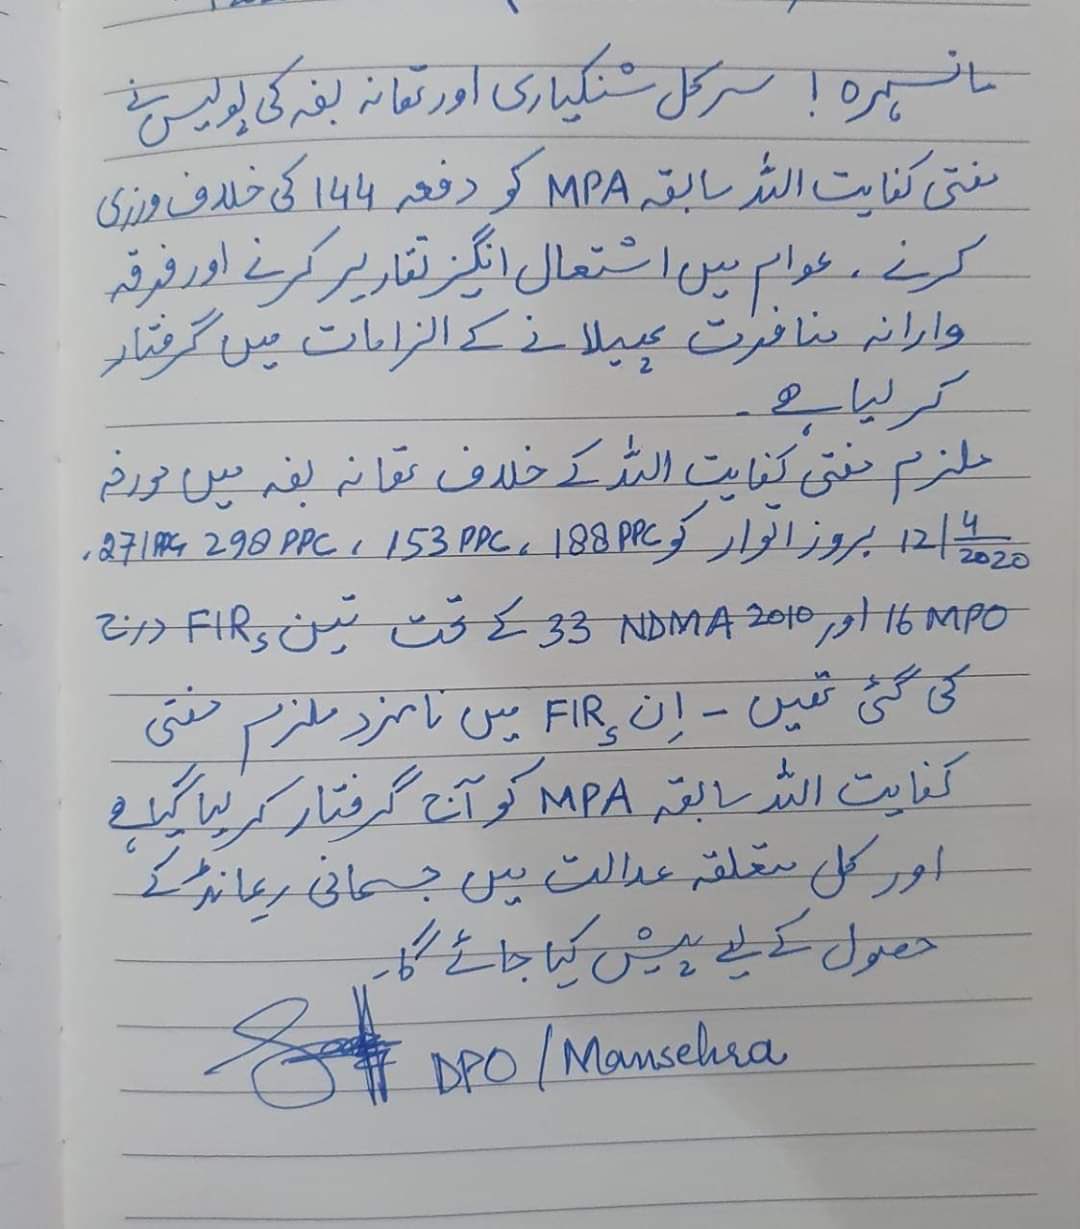 مانسہرہ ! سرکل شنکیاری اور تھانہ بفہ کی پولیس نے
مفتی کفایت اللہ سابقہ MPA کو دفعہ 144 کی خلاف ورزی
کرنے ، عوام میں اشتعال انگیز تقاریر کرنے اور فرقہ
وارانہ منافرت پھیلانے کے الزامات میں گرفتار
کر لیا ہے ۔
ملزم مفتی کفایت اللہ کے خلاف تھانہ بفہ میں مورخہ
12/4/2020 بروز اتوار کو 188 PPC ، 153 PPC ، 298 PPC ،
16 MPO اور 33 NDMA 2010 کے تحت تین FIRs درج
کی گئی تھیں ۔ اِن FIRs میں نامزد ملزم مفتی
کفایت اللہ سابقہ MPA کو آج گرفتار کر لیا گیا ہے
اور کل متعلقہ عدالت میں جسمانی ریمانڈ کے
حصول کے لیے پیش کیا جائے گا ۔
DPO / Mansehra